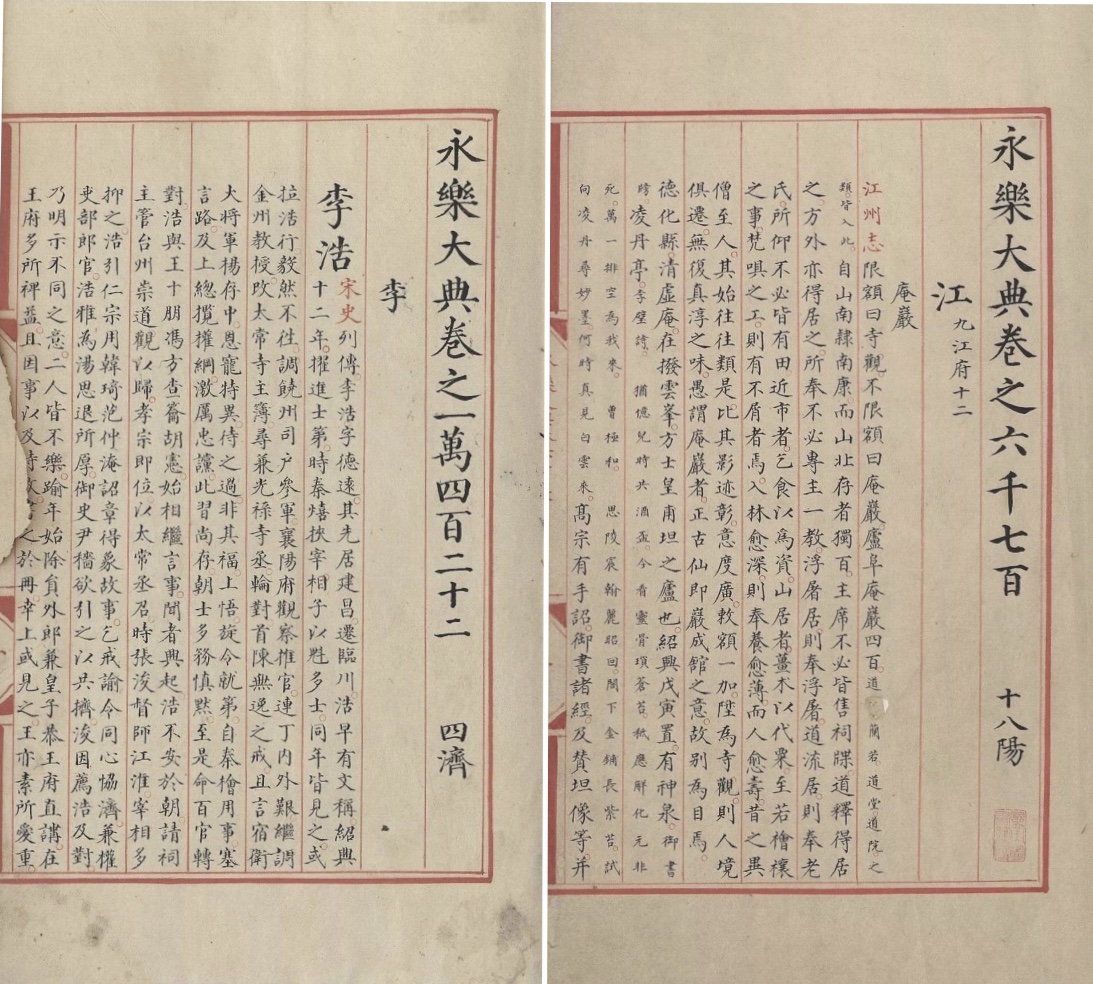 永樂大典卷之六千七百 十八陽
江 九江府十二
庵巖
江州志限額曰寺觀不限額曰庵巖廬阜庵巖四百道 蘭若道堂道院之
類皆入此自山南隸南康而山北存者獨百主席不必皆售祠牒道釋得居
之方外亦得居之所奉不必專主一教浮屠居則奉浮屠道流居則奉老
氏所仰不必皆有田近市者乞食以為資山居者薑朮以代粟至若檜禳
之事梵唄之工則有不屑者焉入林愈深則奉養愈薄而人愈壽昔之異
僧至人其始往往類是比其影迹彰意度廣敕額一加陞為寺觀則人境
俱遷無復真淳之味愚謂庵巖者正古仙即巖成館之意故別為目焉
德化縣清虛庵在撥雲峯方士皇甫坦之廬也紹興戊寅置有神泉御書
時凌丹亭李壁詩 猶憶兒時共酒盃今看靈骨瑣蒼苔秪應解化元非
死萬一排空為我來曹極和 思陵宸翰麗昭回閣下金鋪長紫苔試
向凌丹尋妙墨何時真見白雲來高宗有手詔御書諸經及賛坦像等并
永樂大典卷之一萬四百二十二 四濟
李
李浩宋史列傳李浩字德遠其先居建昌遷臨川浩早有文稱紹興
十二年擢進士第時秦熺挾宰相子以魁多士同年皆見之或
拉浩行毅然不往調饒州司户參軍襄陽府觀察推官連丁内外艱繼調
金州教授改太常寺主簿尋兼光祿寺丞輪對首陳無逸之戒且言宿衛
大將軍楊存中恩寵特異待之過非其福上悟旋令就第自秦檜用事塞
言路及上總攬權綱激厲忠讜此習尚存朝士多務慎默至是命百官轉
對浩與王十朋馮方查籥胡憲始相繼言事聞者興起浩不安於朝請祠
主管台州崇道觀以歸孝宗即位以太常丞召時張浚督師江淮宰相多
抑之浩引仁宗用韓琦范仲淹詔章得象故事乞戒諭令同心協濟兼權
吏部郎官浩雅為湯思退所厚御史尹穡欲引之以共擠浚因薦浩及對
乃明示不同之意二人皆不樂踰年始除員外郎兼皇子恭王府直講在
王府多所裨益且因事以及時政書之於冊幸上或見之王亦素所愛重